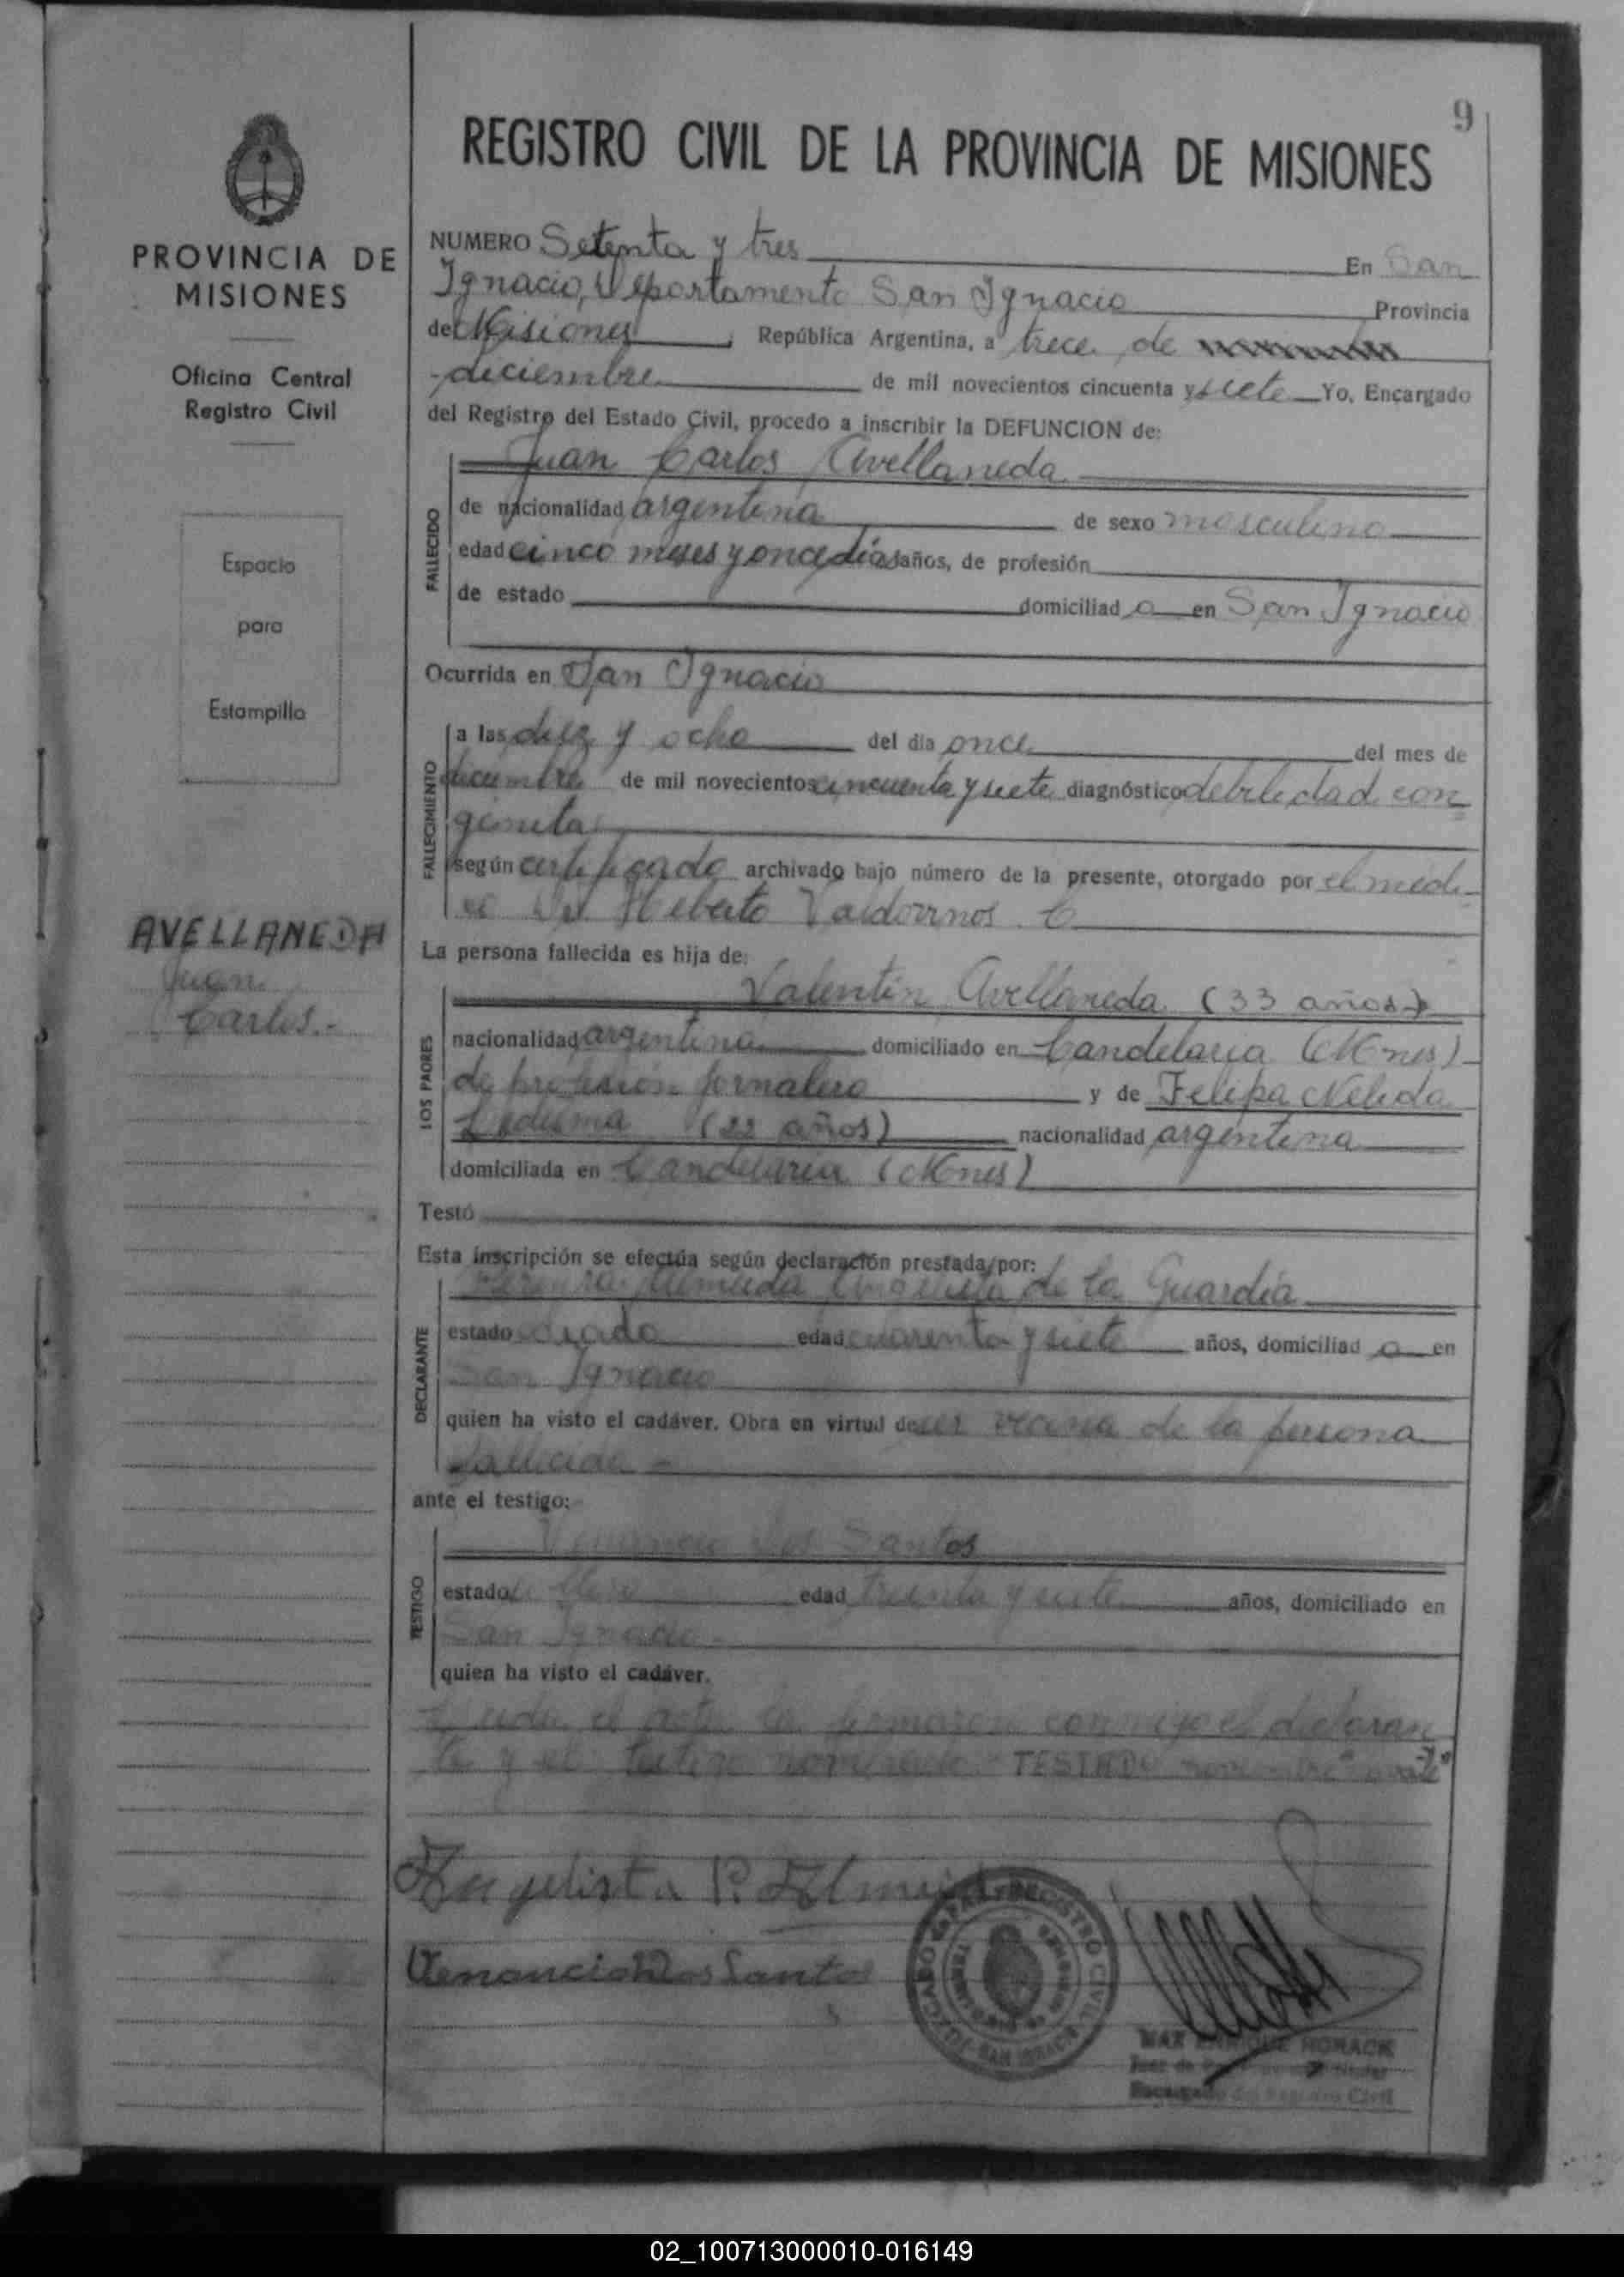 9
REGISTRO CIVIL DE LA PROVINCIA DE MISIONES
PROVINCIA DE
MISIONES
Oficina Central
Registro Civil
Espacio
para
Estampilla
AVELLANEDA
Juan
Carlos.-
NUMERO Setenta y tres En San
Ignacio, Departamento San Ignacio Provincia
de Misiones, República Argentina, a trece de
diciembre de mil novecientos cincuenta y siete Yo, Encargado
del Registro del Estado Civil, procedo a inscribir la DEFUNCION de:
Juan Carlos Avellaneda
FALLECIDO
de nacionalidad argentina de sexo masculino
edad cinco meses y once días años, de profesión
de estado domiciliad o en San Ignacio
Ocurrida en San Ignacio
FALLECIMIENTO
a las diez y ocho del día once del mes de
diciembre de mil novecientos cincuenta y siete diagnóstico debilidad con
genita
según certificado archivado bajo número de la presente, otorgado por el médi-
co Dr. Heberto Valdovinos C.
La persona fallecida es hija de:
LOS PADRES
Valentín Avellaneda (33 años)
nacionalidad argentina domiciliado en Candelaria (Mnes)
de profesión jornalero y de Felipa Nelida
Ledesma (22 años) nacionalidad argentina
domiciliada en Candelaria (Mnes)
Testó
Esta inscripción se efectúa según declaración prestada por:
DECLARANTE
Almeida Angelista de la Guardia
estado edad cuarenta y siete años, domiciliad a en
San Ignacio
quien ha visto el cadáver. Obra en virtud de ser vecina de la persona
fallecida -
ante el testigo:
TESTIGO
Venancio Dos Santos
estado soltero edad treinta y siete años, domiciliado en
San Ignacio
quien ha visto el cadáver.
Leida el acta la firmaron conmigo el declaran
te y el testigo nombrado - TESTADO noviembre
Angelista P. Almeida
Venancio Dos Santos
REGISTRO CIVIL
SAN IGNACIO
MAX ENRIQUE HORACK
Juez de
Encargado del Registro Civil
02_100713000010-016149